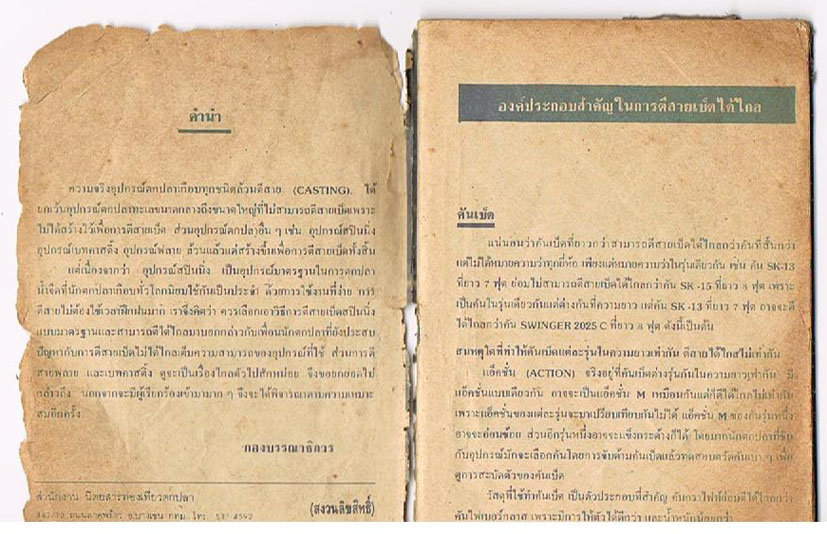 คำนำ
ความจริงอุปกรณ์ตกปลาเกือบทุกชนิดล้วนตีสาย (CASTING). ได้
ยกเว้นอุปกรณ์ตกปลาทะเลขนาดกลางถึงขนาดใหญ่ที่ไม่สามารถตีสายเบ็ดเพราะ
ไม่ได้สร้างไว้เพื่อการตีสายเบ็ด ส่วนอุปกรณ์ตกปลาอื่น ๆ เช่น อุปกรณ์สปินนิ่ง
อุปกรณ์เบทคาสติ้ง อุปกรณ์ฟลาย ล้วนแล้วแต่สร้างขึ้นเพื่อการตีสายเบ็ดทั้งสิ้น
แต่เนื่องจากว่า อุปกรณ์สปินนิ่ง เป็นอุปกรณ์มาตรฐานในการตกปลา
น้ำจืดที่นักตกปลาเกือบทั่วโลกนิยมใช้กันเป็นประจำ ด้วยการใช้งานที่ง่าย การ
ตีสายไม่ต้องใช้เวลาฝึกฝนมาก เราจึงคิดว่า ควรเลือกเอาวิธีการตีสายเบ็ดสปินนิ่ง
แบบมาตรฐานและสามารถตีได้ไกลมาบอกกล่าวกับเพื่อนนักตกปลาที่ยังประสบ
ปัญหากับการตีสายเบ็ดไม่ได้ไกลเต็มความสามารถของอุปกรณ์ที่ใช้ ส่วนการตี
สายฟลาย และเบทคาสติ้ง ดูจะเป็นเรื่องไกลตัวไปสักหน่อย จึงขอยกยอดไป
กล่าวถึง นอกจากจะมีผู้เรียกร้องเข้ามามาก ๆ จึงจะได้พิจารณาตามความเหมาะ
สมอีกครั้ง
กองบรรณาธิการ
สำนักงาน นิตยสารท่องเที่ยวตกปลา
(สงวนลิขสิทธิ์)
องค์ประกอบสำคัญในการตีสายเบ็ดได้ไกล
คันเบ็ด
แน่นอนว่าคันเบ็ดที่ยาวกว่าสามารถตีสายเบ็ดได้ไกลกว่าคันที่สั้นกว่า
แต่ไม่ได้หมายความว่าทุกยี่ห้อ เพียงแต่หมายความว่าในรุ่นเดียวกัน เช่น คัน SK-13
ที่ยาว 7 ฟุต ย่อมไม่สามารถตีสายเบ็ดได้ไกลกว่าคัน SK -15 ที่ยาว 8 ฟุต เพราะ
เป็นคันในรุ่นเดียวกันแต่ต่างกันที่ความยาว แต่คัน SK -13 ที่ยาว 7 ฟุต อาจจะตี
ได้ไกลกว่าคัน SWINGER 2025 C ที่ยาว 8 ฟุต ดังนี้เป็นต้น
สาเหตุใดที่ทำให้คันเบ็ดแต่ละรุ่นในความยาวเท่ากัน ตีสายได้ไกลไม่เท่ากัน
แอ็คชั่น (ACTION) จริงอยู่ที่คันเบ็ดต่างรุ่นกันในความยาวเท่ากัน มี
แอ็คชั่นแบบเดียวกัน อาจจะเป็นแอ็คชั่น M เหมือนกันแต่ก็ตีได้ไกลไม่เท่ากัน
เพราะแอ็คชั่นของแต่ละรุ่นจะมาเปรียบเทียบกันไม่ได้ แอ็คชั่น M ของคันรุ่นหนึ่ง
อาจจะอ่อนช้อย ส่วนอีกรุ่นหนึ่งอาจจะแข็งกระด้างก็ได้ โดยมากนักตกปลาที่จับ
กับอุปกรณ์มักจะเลือกคันโดยการจับด้ามคันเบ็ดแล้วทดสอบตวัดคันเบา ๆ เพื่อ
ดูการสะบัดตัวของคันเบ็ด
วัสดุที่ใช้ทำคันเบ็ด เป็นตัวประกอบที่สำคัญ คันกราไฟท์ย่อมตีได้ไกลกว่า
คันไฟเบอร์กลาส เพราะมีการให้ตัวได้ดีกว่า และน้ำหนักน้อยกว่า